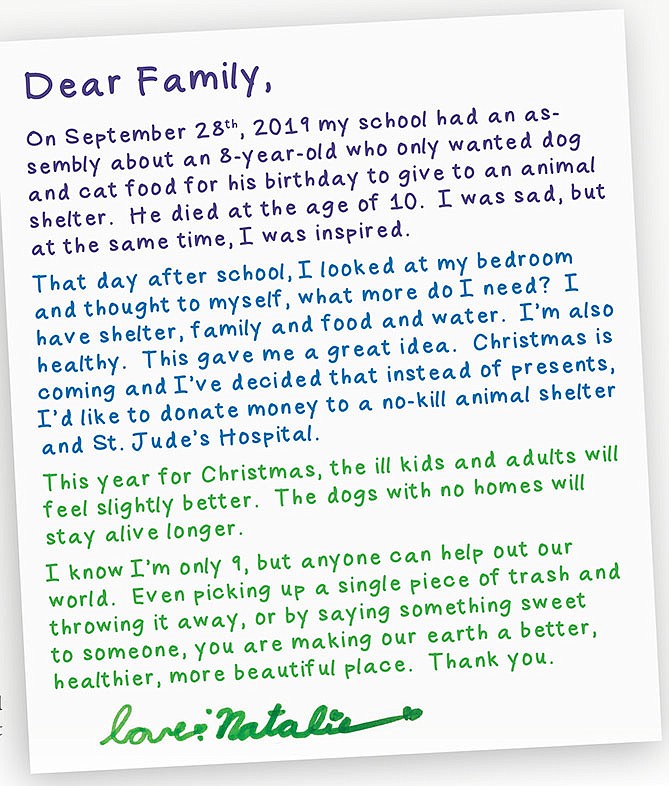 Dear Family,
On September 28th, 2019 my school had an as-
sembly about an 8-year-old who only wanted dog
and cat food for his birthday to give to an animal
shelter. He died at the age of 10. I was sad, but
at the same time, I was inspired.
That day after school, I looked at my bedroom
and thought to myself, what more do I need? I
have shelter, family and food and water. I'm also
healthy. This gave me a great idea. Christmas is
coming and I've decided that instead of presents,
I'd like to donate money to a no-kill animal shelter
and St. Jude's Hospital.
This year for Christmas, the ill kids and adults will
feel slightly better. The dogs with no homes will
stay alive longer.
I know I'm only 9, but anyone can help out our
world. Even picking up a single piece of trash and
throwing it away, or by saying something sweet
to someone, you are making our earth a better,
healthier, more beautiful place. Thank you.
love: Natalie